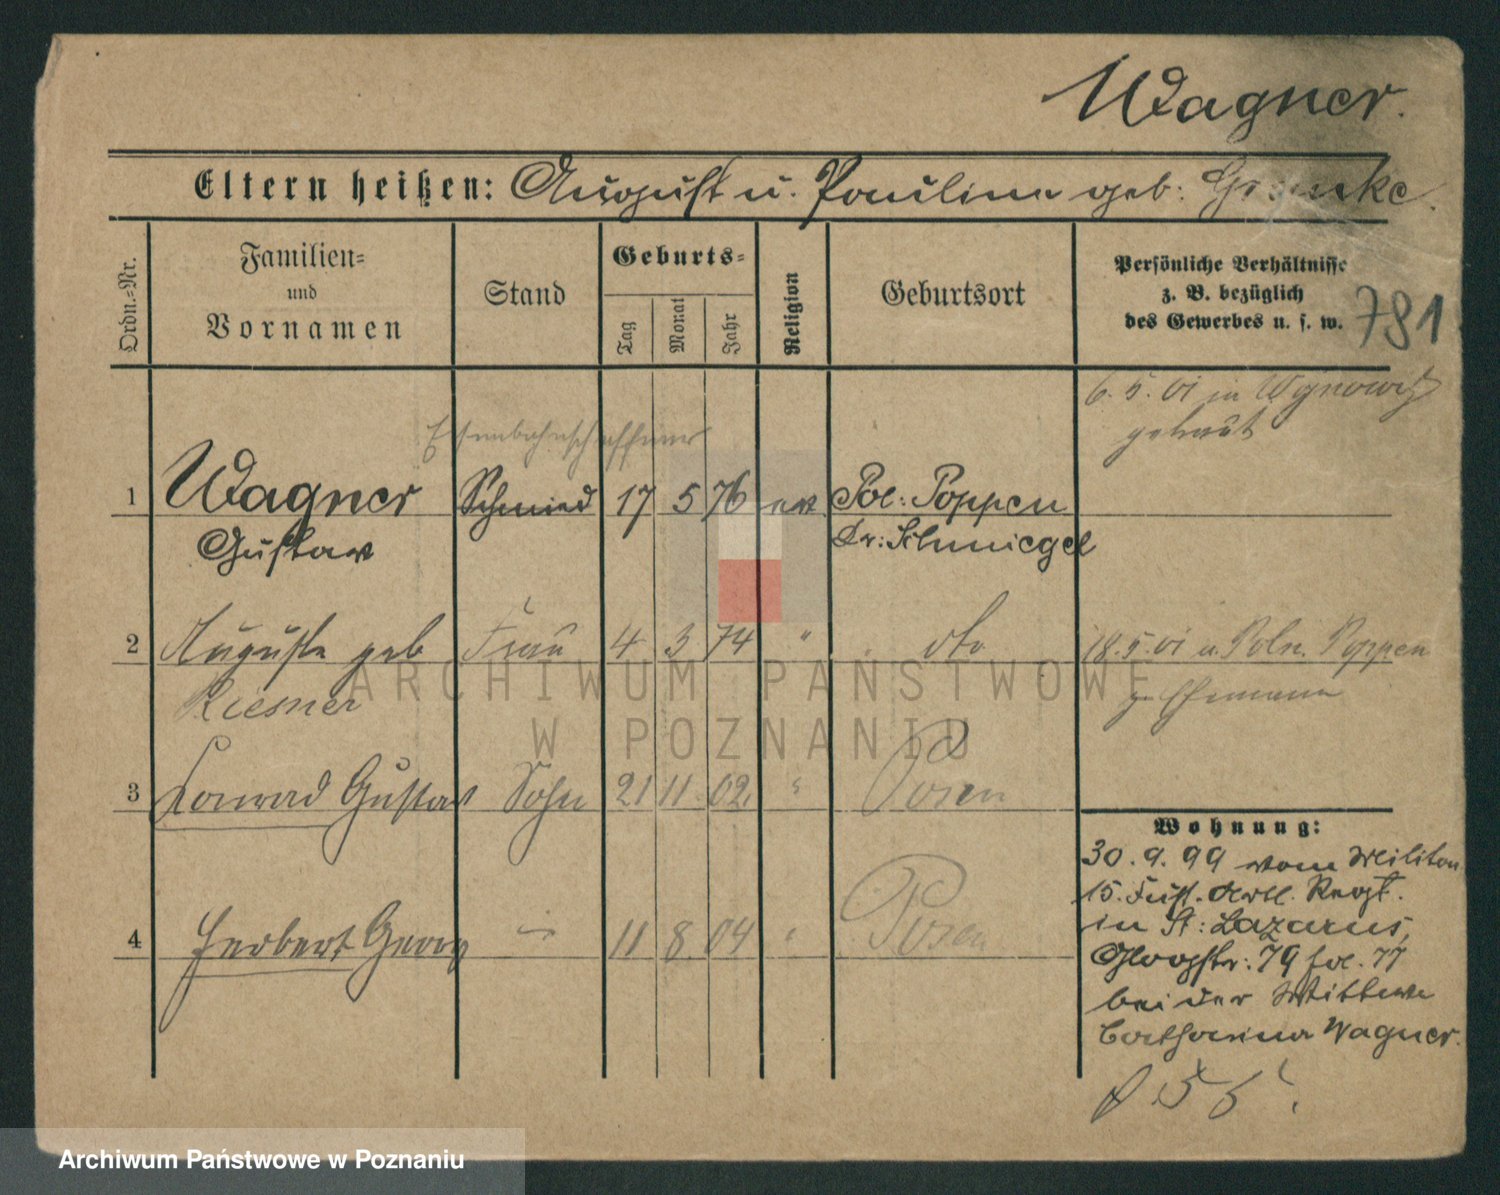 Wagner.
Eltern heißen: August u. Pauline geb:
Ordn.=Nr.
Familien=
und
Vornamen
Stand
Geburts=
Tag
Monat
Jahr
Religion
Geburtsort
Persönliche Verhältnisse
z. B. bezüglich
des Gewerbes u. s. w.
781
6. 5. 01 in
getraut
Eisenbahnschaffner
1 Wagner Schmied 17 5 76 Pol: Poppen
Gustav Kr: Schmiegel
2 Auguste geb Frau 4 3 74 " dto 18.5.01 Poln. Poppen
Riesner z. Ehemann
3 Konrad Gustav Sohn 21 11. 02. " Posen
Wohnung:
30. 9. 99 vom Militär
15. Fußt. Artl. Regt.
4 Herbert Georg " 11 8. 04 " Posen
in St: Lazarus,
Glogstr: 79 fol. 77
bei der Wittwe
Catharina Wagner.
ARCHIWUM PAŃSTWOWE
W POZNANIU
Archiwum Państwowe w Poznaniu